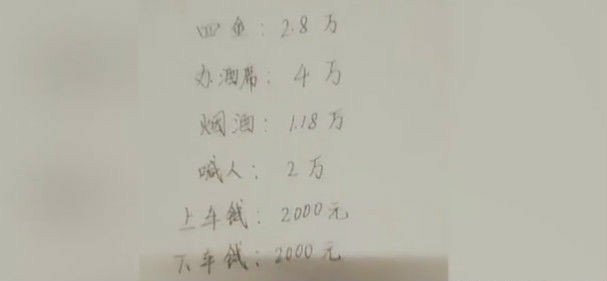 四金：2.8万
办酒席：4万
烟酒：1.18万
喊人：2万
上车钱：2000元
下车钱：2000元